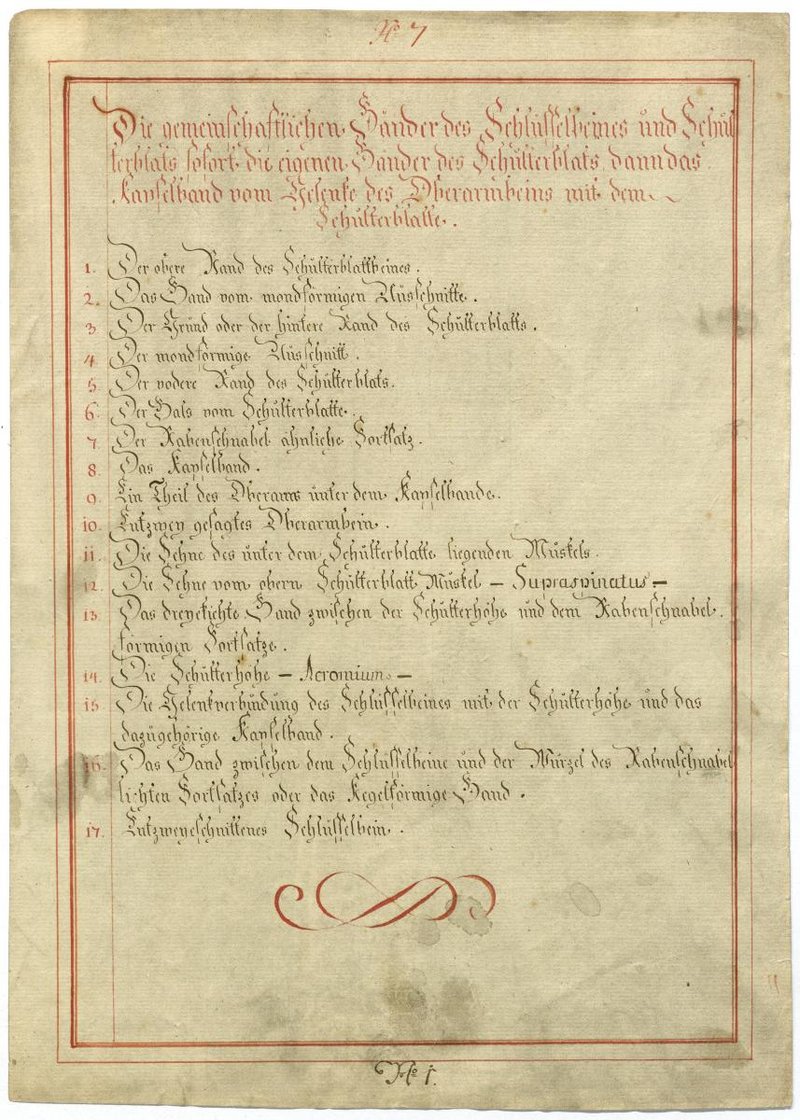 No 7
Die gemeinschaftlichen Bänder des Schlüsselbeines und Schul
terblats sofort die eigenen Bänder des Schulterblats, dann das
Kapselband vom Gelenke des Oberarmbeins mit dem
Schulterblatte.
1. Der obere Rand des Schulterblattbeines.
2. Das Band vom mondförmigen Ausschnitte.
3. Der Grund oder der hintere Rand des Schulterblatts.
4. Der mondförmige Ausschnitt.
5. Der vodere Rand des Schulterblats.
6. Der Hals vom Schulterblatte.
7. Der Rabenschnabel ähnliche Fortsatz.
8. Das Kapselband.
9. Ein Theil des Oberarms unter dem Kapselbande.
10. Entzwey gesägtes Oberarmbein.
11. Die Sehne des unter dem Schulterblatte liegenden Muskels.
12. Die Sehne vom obern Schulterblatt Muskel – Supraspinatus –
13. Das dreyekichte Band zwischen der Schulterhöhe und dem Rabenschnabel.
förmigen Fortsatze.
14. Die Schulterhöhe – Acromium –
15. Die Gelenkverbindung des Schlüsselbeines mit der Schulterhöhe und das
dazugehörige Kapselband.
16. Das Band zwischen dem Schlüsselbeine und der Wurzel des Rabenschnabel
lichten Fortsatzes oder das Kegelförmige Band.
17. Entzweygeschnittenes Schlüsselbein.
No 1.